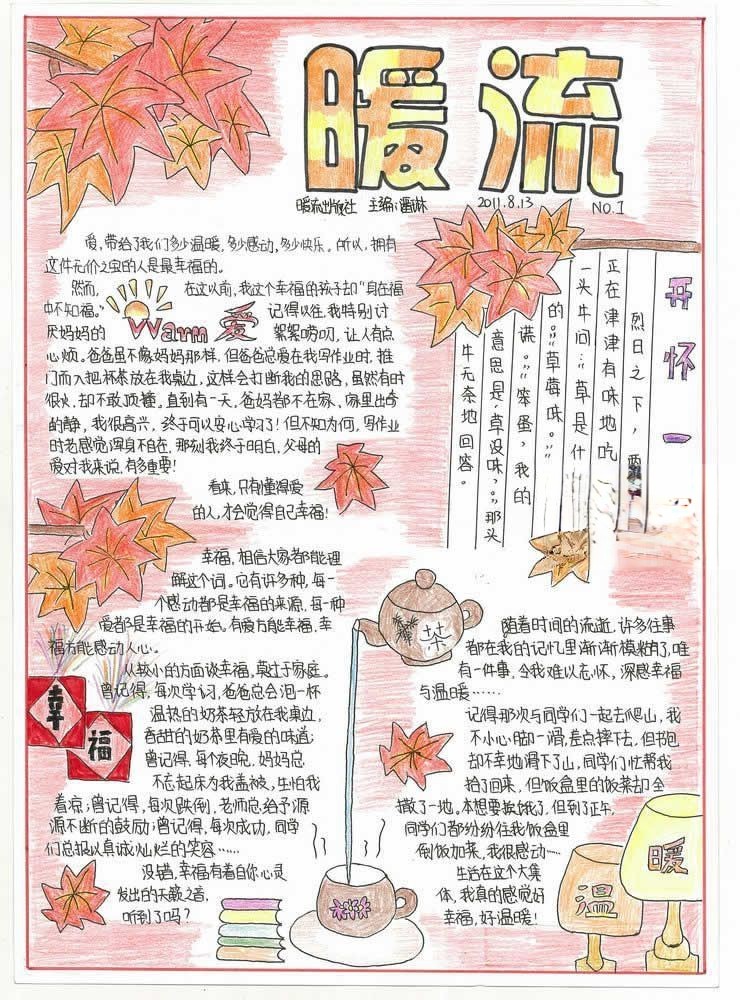 暖流
暖流出版社 主编:潘琳 2011.8.13 NO.1
爱,带给了我们多少温暖,多少感动,多少快乐。所以,拥有
这件无价之宝的人是最幸福的。
然而, 在这以前,我这个幸福的孩子却“身在福
中不知福。”
Warm 爱
记得以往,我特别讨
厌妈妈的 絮絮唠叨,让人有点
心烦。爸爸虽不像妈妈那样,但爸爸总爱在我写作业时,推
门而入把杯茶放在我桌边,这样会打断我的思路,虽然有时
很火,却不敢顶撞。直到有一天,爸妈都不在家,家里出奇
的静,我很高兴,终于可以安心学习了!但不知为何,写作业
时老感觉浑身不自在,那刻我终于明白,父母的
爱对我来说,有多重要!
看来,只有懂得爱
的人,才会觉得自己幸福!
开怀一
烈日之下,两
正在津津有味地吃
一头牛问:“草是什
的:“草莓味。”
谎。”“笨蛋,我的
意思是:草没味。”那头
牛无奈地回答。
幸福,相信大家都能理
解这个词。它有许多种,每一
个感动都是幸福的来源,每一种
爱都是幸福的开始。有爱方能幸福,幸
福方能感动人心。
从较小的方面谈幸福,莫过于家庭。
曾记得,每次学习,爸爸总会泡一杯
温热的奶茶轻放在我桌边,
香甜的奶茶里有爱的味道;
曾记得,每个夜晚,妈妈总
不忘起床为我盖被,生怕我
着凉;曾记得,每次跌倒,老师总给予源
源不断的鼓励;曾记得,每次成功,同学
们总报以真诚灿烂的笑容……
没错,幸福有着自你心灵
发出的天籁之音,
听到了吗?
幸
福
茶
随着时间的流逝,许多往事
都在我的记忆里渐渐模糊了,唯
有一件事,令我难以忘怀,深感幸福
与温暖……
记得那次与同学们一起去爬山,我
不小心脚一滑,差点摔下去,但书包
却不幸地滑下了山,同学们忙帮我
拾了回来,但饭盒里的饭菜却全
撒了一地。本想要挨饿了,但到了正午,
同学们都纷纷往我饭盒里
倒饭加菜,我很感动…
生活在这个大集
体,我真的感觉好
幸福,好温暖!
暖
温